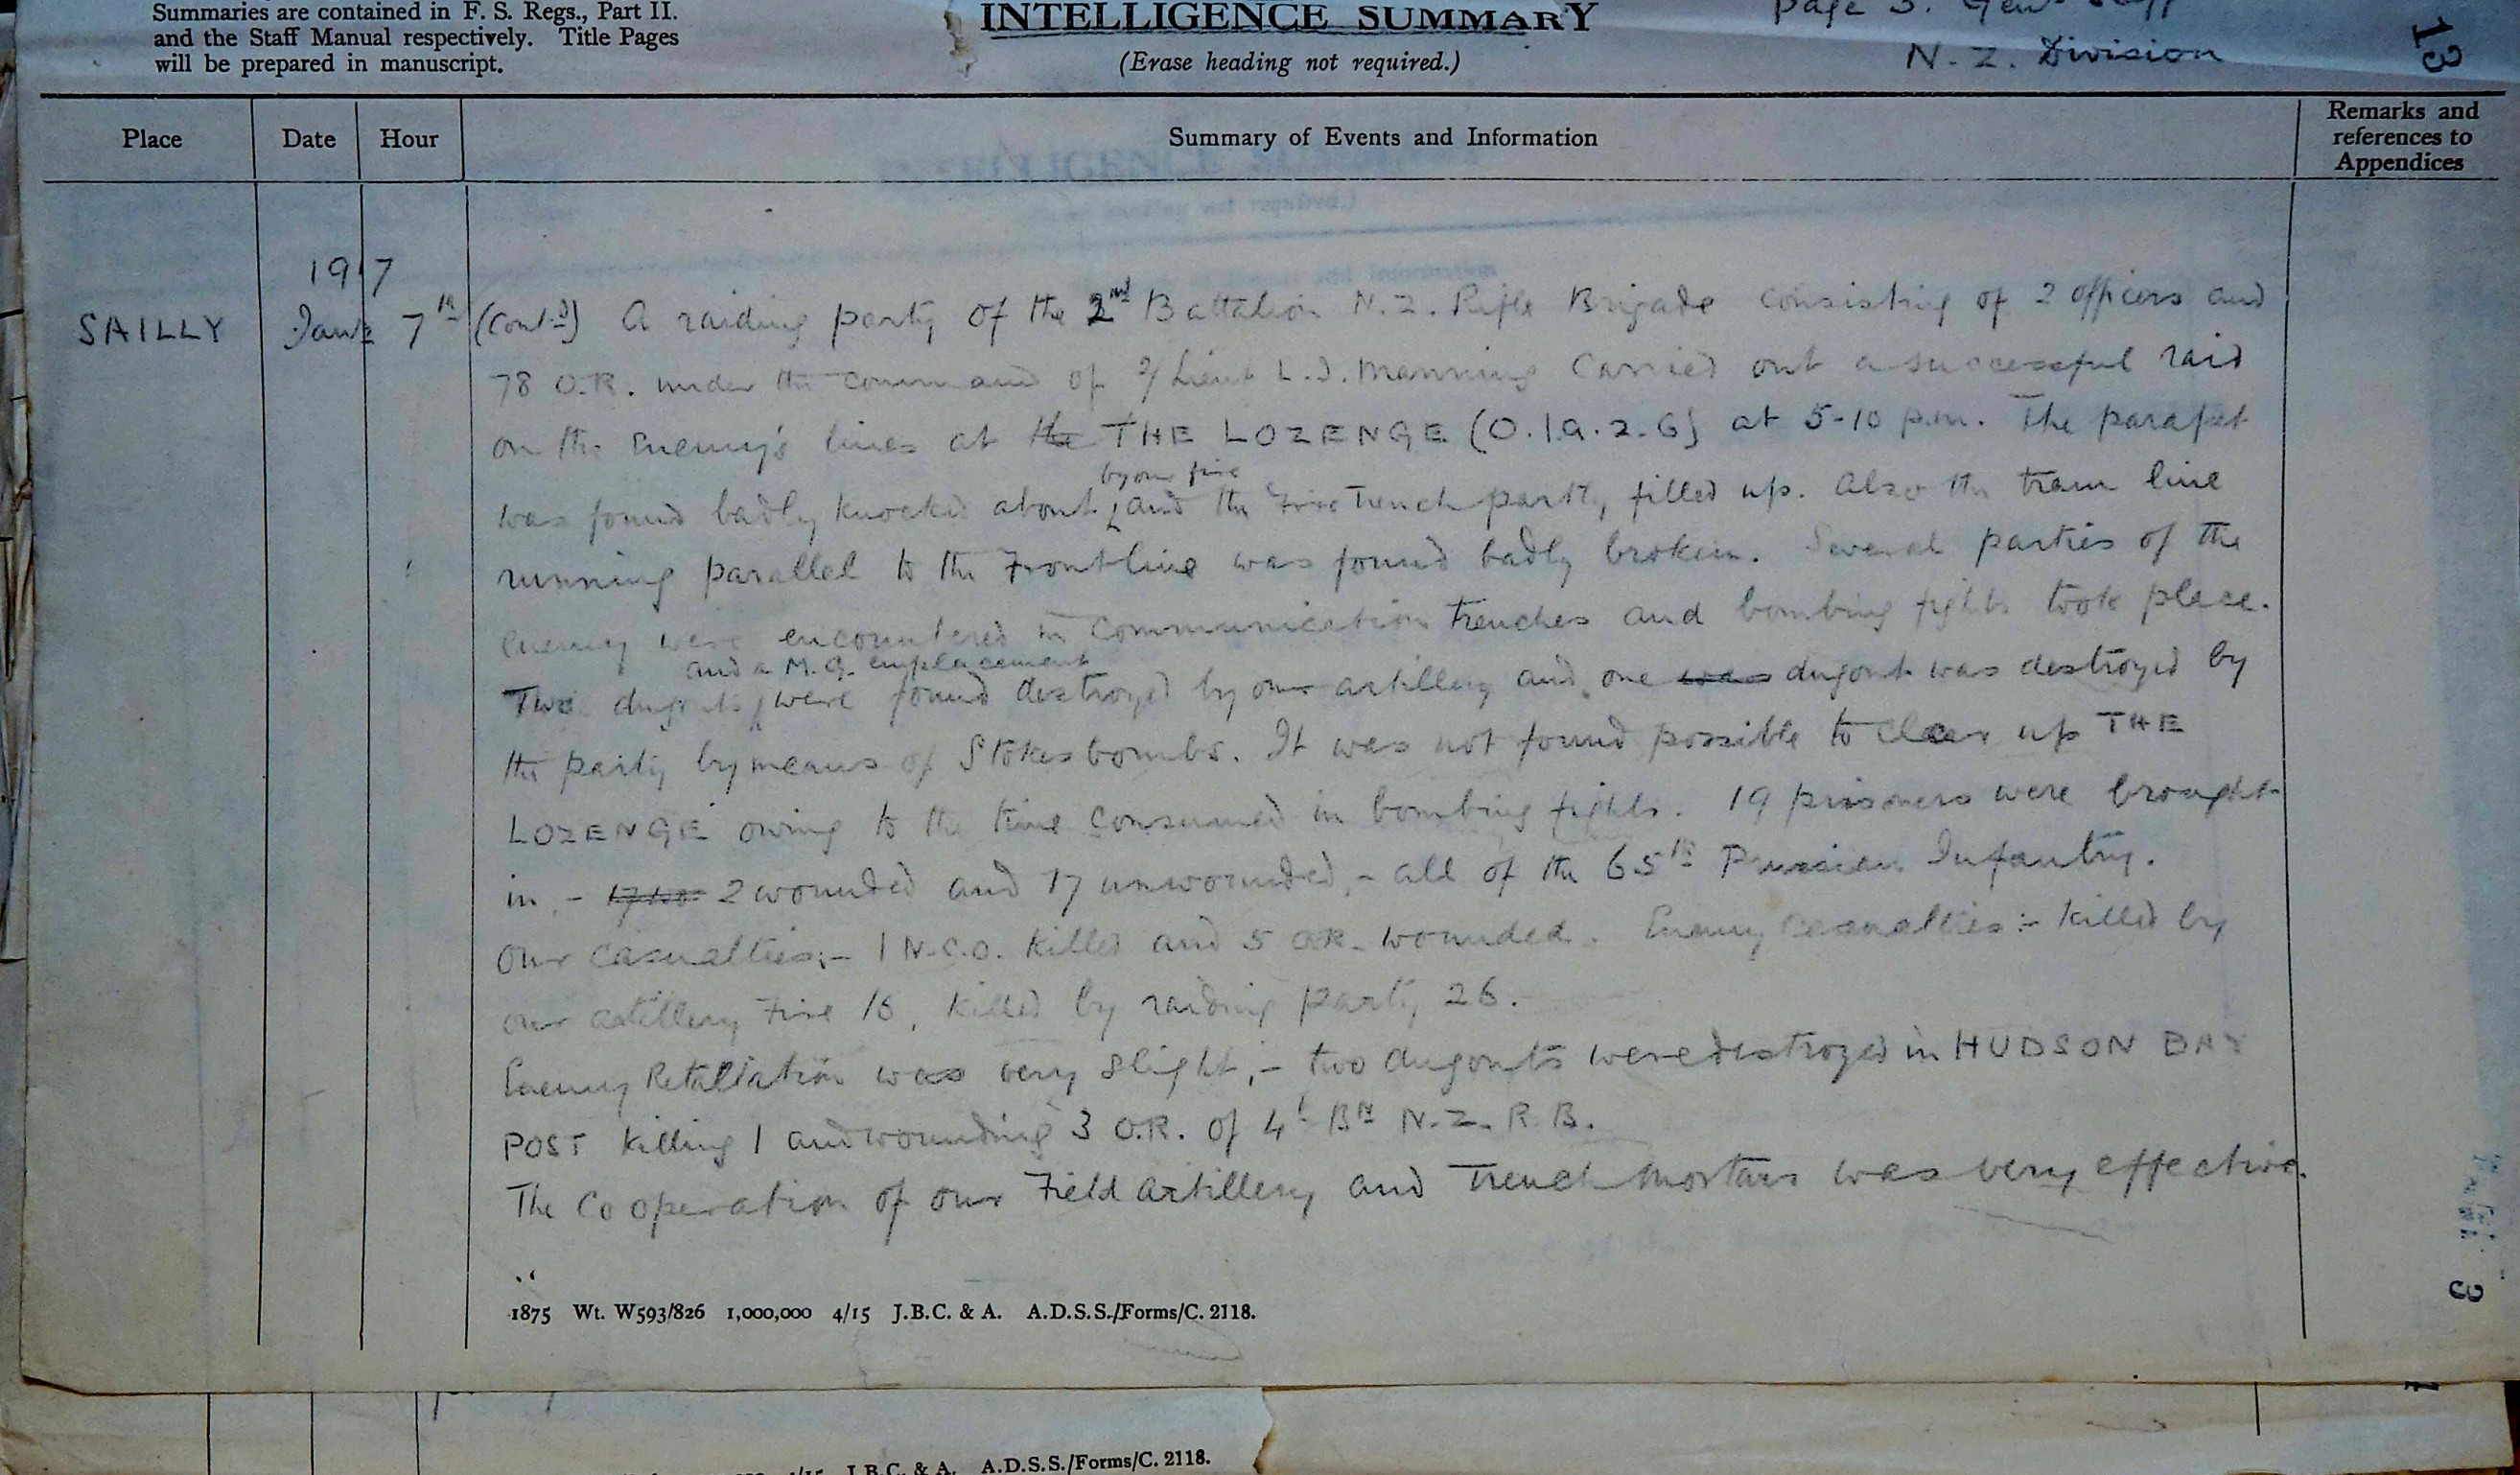 Summaries are contained in F. S. Regs., Part II.
and the Staff Manual respectively. Title Pages
will be prepared in manuscript.
INTELLIGENCE SUMMARY
(Erase heading not required.)
Page 3. Genl Staff
N. Z. Division
13
Place Date Hour Summary of Events and Information Remarks and references to Appendices
1917
SAILLY Jany 7th (Contd) A raiding party of the 2nd Battalion N.Z. Rifle Brigade consisting of 2 officers and
78 O.R. under the command of 2/Lieut L.I. Manning carried out a successful raid
on the Enemy's lines at the THE LOZENGE (O.1.a.2.6) at 5-10 p.m. The parapet
by our fire
was found badly knocked about, and the Fire Trench partly filled up. Also the tram line
running parallel to the Front line was found badly broken. Several parties of the
enemy were encountered in Communication Trenches and bombing fights took place.
and a M.G. emplacement
Two dugouts were found destroyed by our artillery and one was dugout was destroyed by
the party by means of Stokes bombs. It was not found possible to clear up THE
LOZENGE owing to the time consumed in bombing fights. 19 prisoners were brought
in, - 17 wo 2 wounded and 17 unwounded, - all of the 65th Prussian Infantry.
Our Casualties:- 1 N.C.O. killed and 5 O.R. wounded. Enemy casualties:- killed by
our artillery Fire 16, killed by raiding party 26.
Enemy Retaliation was very slight, - two dugouts were destroyed in HUDSON BAY
POST killing 1 and wounding 3 O.R. of 4t Bn N.Z. R.B.
The Cooperation of our Field Artillery and Trench Mortars was very effective.
1875 Wt. W593/826 1,000,000 4/15 J.B.C. & A. A.D.S.S./Forms/C. 2118.
3
4/15 J.B.C. & A. A.D.S.S./Forms/C. 2118.